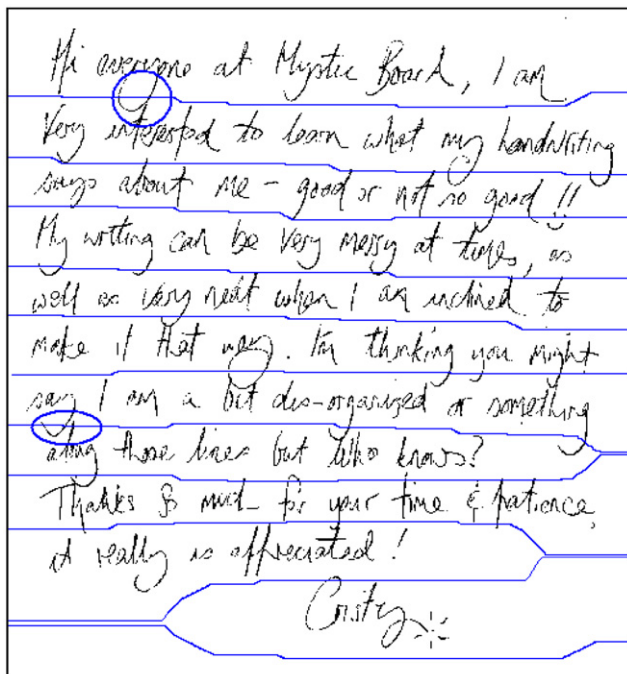 Hi everyone at Mystic Board, I am
Very interested to learn what my handwriting
says about me - good or not so good !!
My writting can be very messy at times, as
well as very neat when I am inclined to
make it that way. I'm thinking you might
say I am a bit dis-organized or something
along those lines but who knows?
Thanks so much for your time & patience,
it really is appreciated!
Cristy